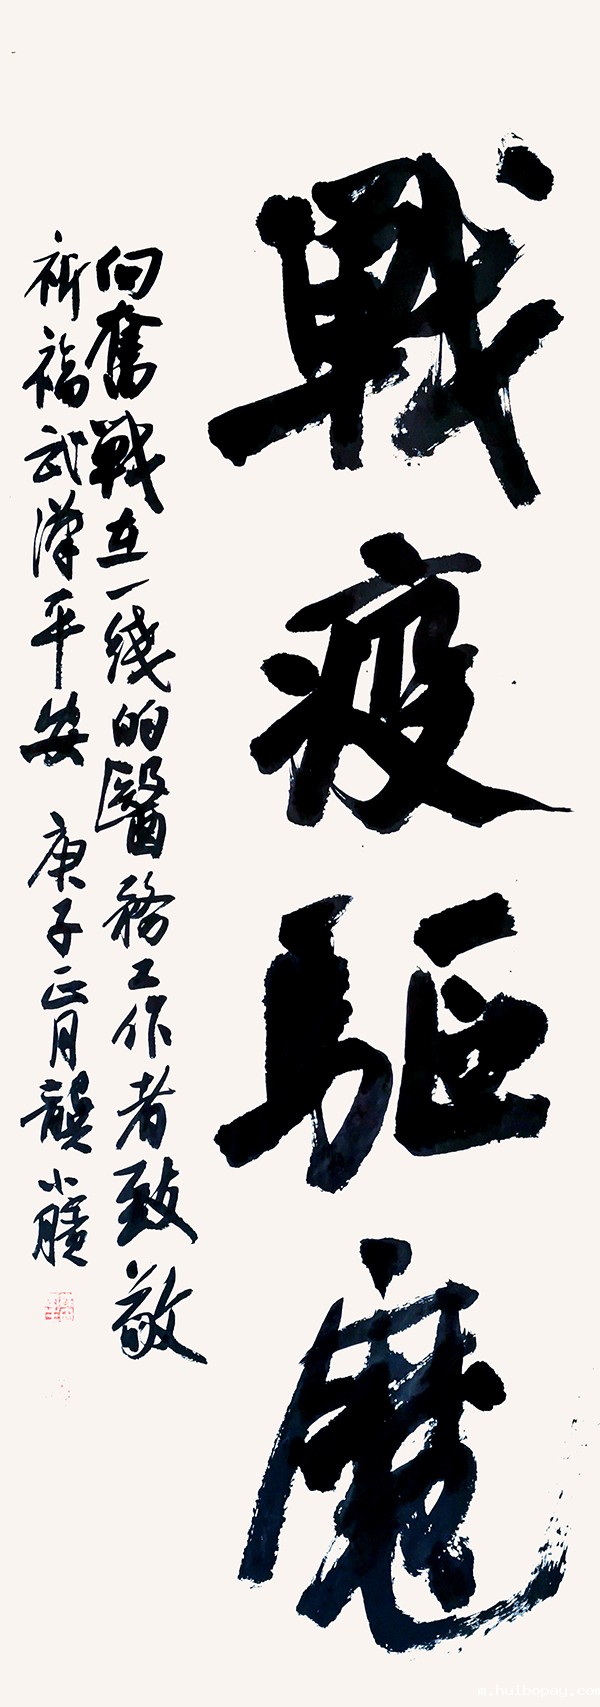 戰疫驱魔
向奮戰在一线的醫務工作者致敬
祈福武漢平安 庚子正月龔小膑
m.huibopay.com